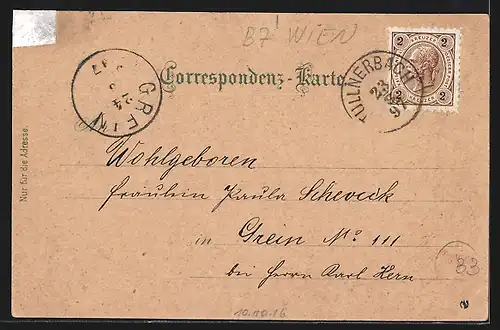 B7 WIEN
Correspondenz-Karte
GREIN
24
97
TULLNERBACH
23
97
2 KREUZER 2
2 2
Nur für die Adresse.
Wohlgeboren
Fräulein Paula Scheveck
in Grein No. 111
bei Herrn Karl Kern
83
10.10.16